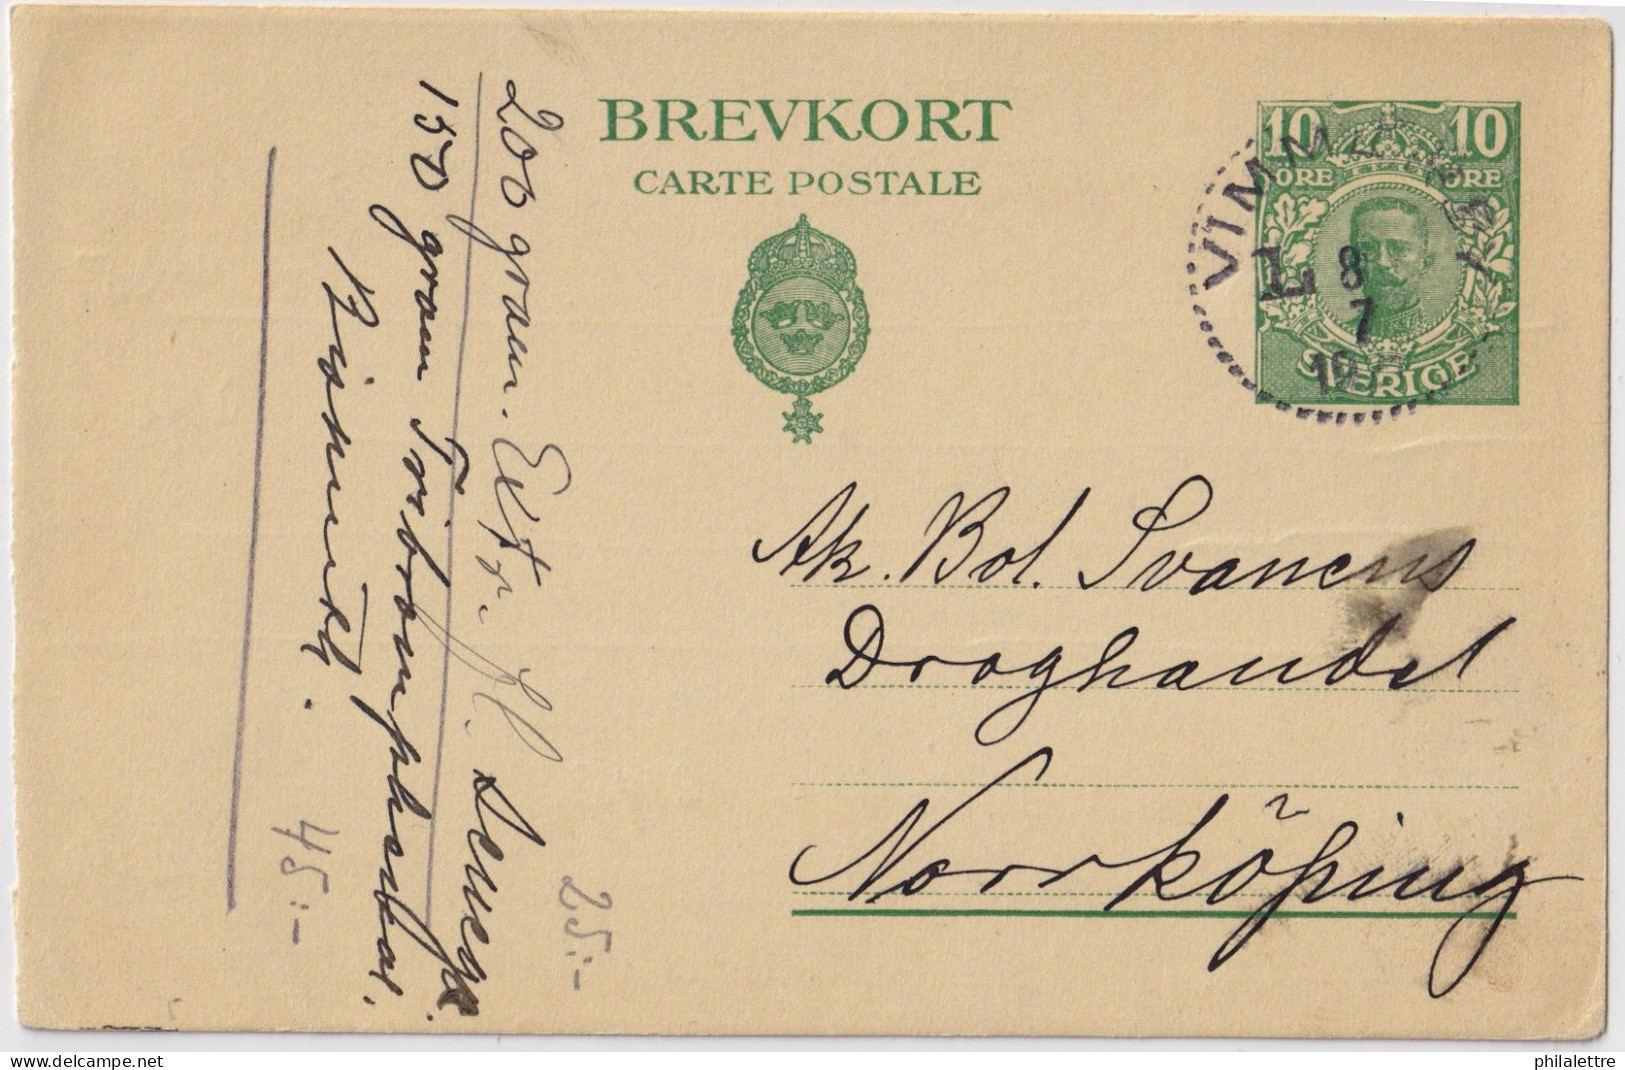 BREVKORT
CARTE POSTALE
10 10
ÖRE ÖRE
SVERIGE
VIMMERBY
L 8
7
19
Ak. Bol. Svanens
Droghandel
Norrköping
200 gram. Extr. fl.
150 gram Tribromphen
25:-
45:-
delcampe.net
philalettre